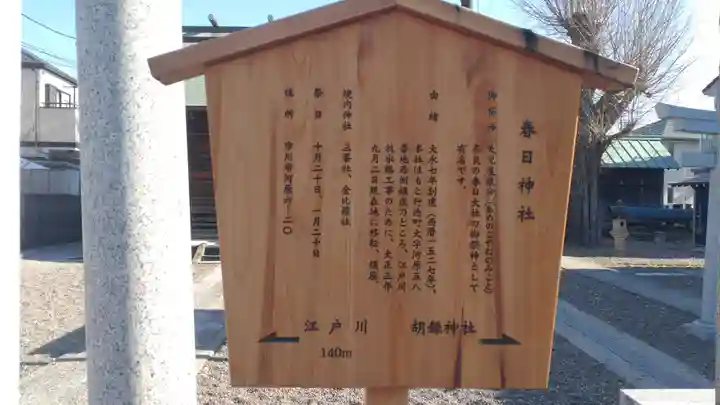 春日神社
御祭神 天児屋根命(あめのこやねのみこと)
奈良の春日大社の御祭神として
有名です。
由緒 大永七年創建(西暦一五二七年)。
本社はもと行徳町大字河原五八
番地西側鎮座のところ、江戸川
放水路工事のために、大正三年
九月二日現在地に移転、鎮座。
境内神社 三峯社、金比羅社
祭日 十月二十日、一月二十日
住所 市川市河原六ー二〇
江戸川 胡録神社
140m